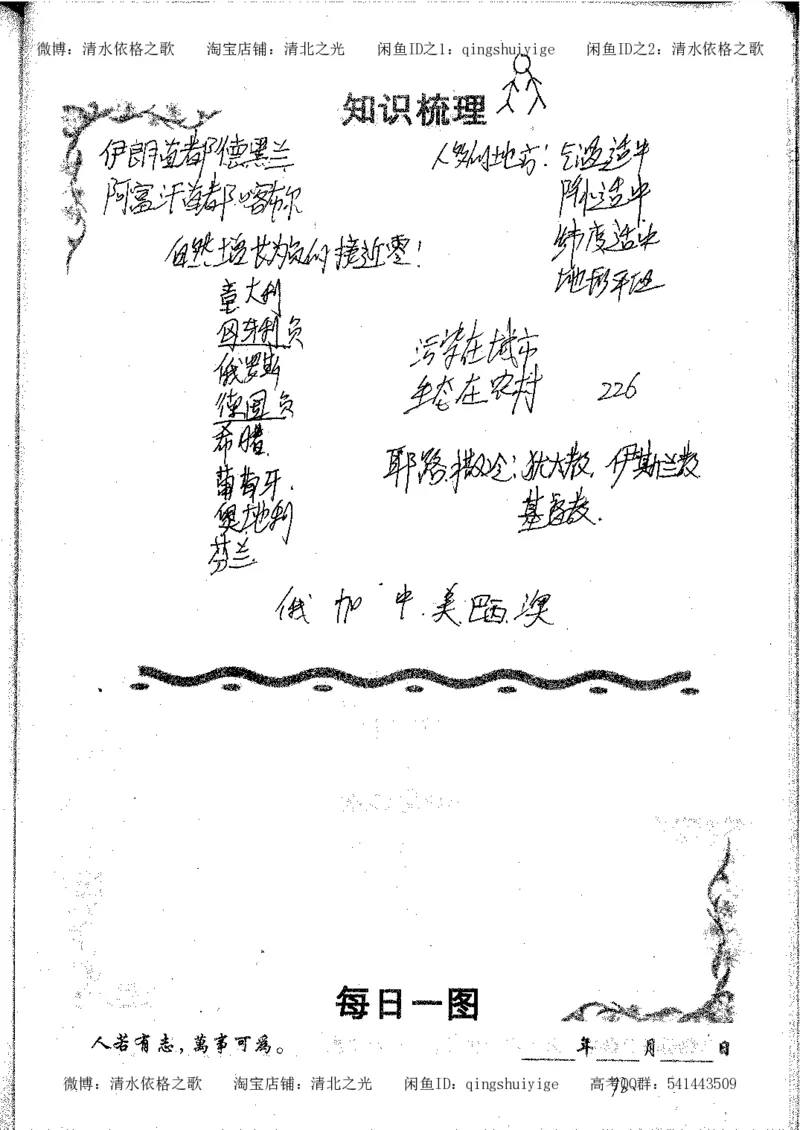 微博：清水依格之歌 淘宝店铺：清北之光 闲鱼ID之1：qingshuiyige 闲鱼ID之2：清水依格之歌
知识梳理
伊朗首都德黑兰
阿富汗首都喀布尔
自然增长为负的接近零！
意大利
匈牙利负
俄罗斯
德国负
希腊
葡萄牙.
奥地利
芬兰
人多的地方：气温适中
降水适中
纬度适中
地形平坦
污染在城市
生态在农村 226
耶路撒冷：犹太教、伊斯兰教
基督教.
俄 加 中.美.巴西.澳
每日一图
人若有志，萬事可為。
年 月 日
微博：清水依格之歌 淘宝店铺：清北之光 闲鱼ID：qingshuiyige 高考QQ群：541443509